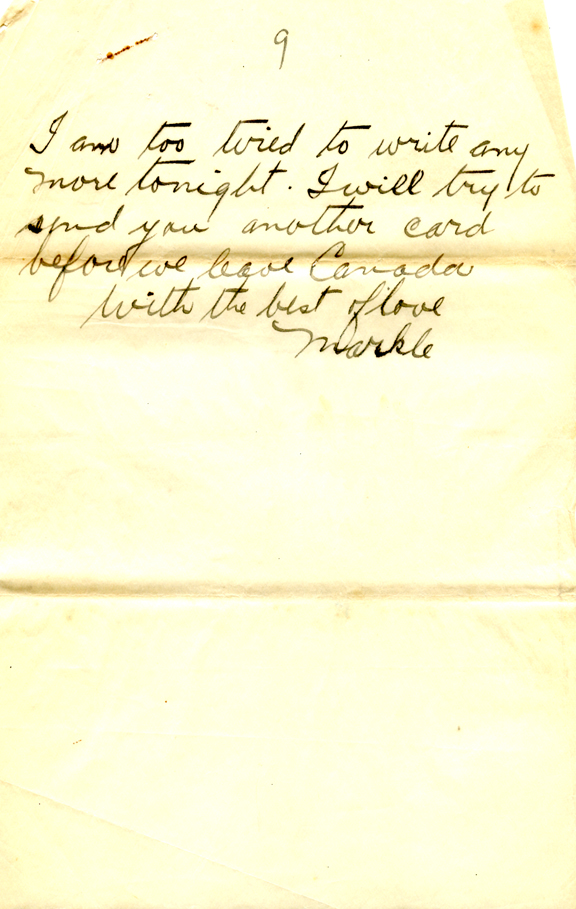 9
I am too tired to write any
more tonight. I will try to
send you another card
before we leave Canada
With the best of love
Markle